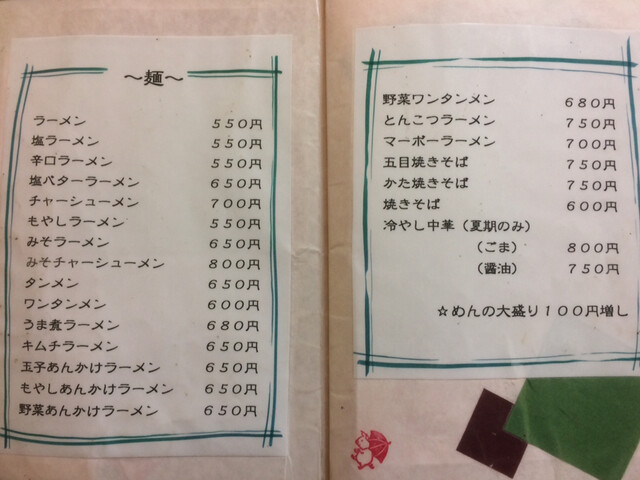 ～麺～
ラーメン 550円
塩ラーメン 550円
辛口ラーメン 550円
塩バターラーメン 650円
チャーシューメン 700円
もやしラーメン 550円
みそラーメン 650円
みそチャーシューメン 800円
タンメン 650円
ワンタンメン 600円
うま煮ラーメン 680円
キムチラーメン 650円
玉子あんかけラーメン 650円
もやしあんかけラーメン 650円
野菜あんかけラーメン 650円
野菜ワンタンメン 680円
とんこつラーメン 750円
マーボーラーメン 700円
五目焼きそば 750円
かた焼きそば 750円
焼きそば 600円
冷やし中華（夏期のみ）
（ごま） 800円
（醤油） 750円
☆めんの大盛り100円増し